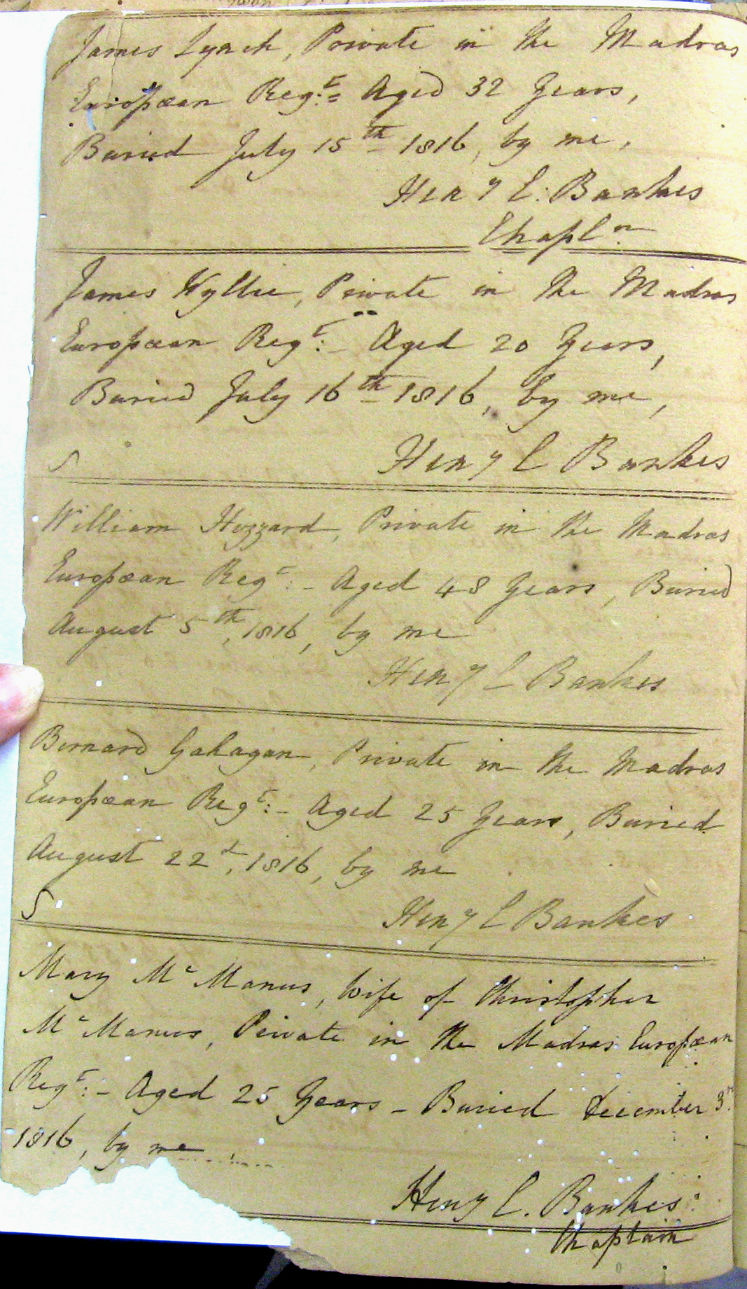 James Lynch, Private in the Madras
European Reg.t Aged 32 Years,
Buried July 15th 1816, by me,
Heny C. Bankes
Chapl.n
James Wyllie, Private in the Madras
European Reg.t:- Aged 20 Years,
Buried July 16th 1816, by me,
S
Heny C Bankes
William Hozzard, Private in the Madras
European Reg.t:- Aged 48 Years, Buried
August 5th, 1816, by me
Heny C Bankes
Bernard Gahagan, Private in the Madras
European Reg.t:- Aged 25 Years, Buried
August 22d, 1816, by me
S
Heny C Bankes
Mary McManus, Wife of Christopher
McManus, Private in the Madras European
Reg.t:- Aged 25 Years - Buried December 3rd
1816, by me
Heny C. Bankes
Chaplain